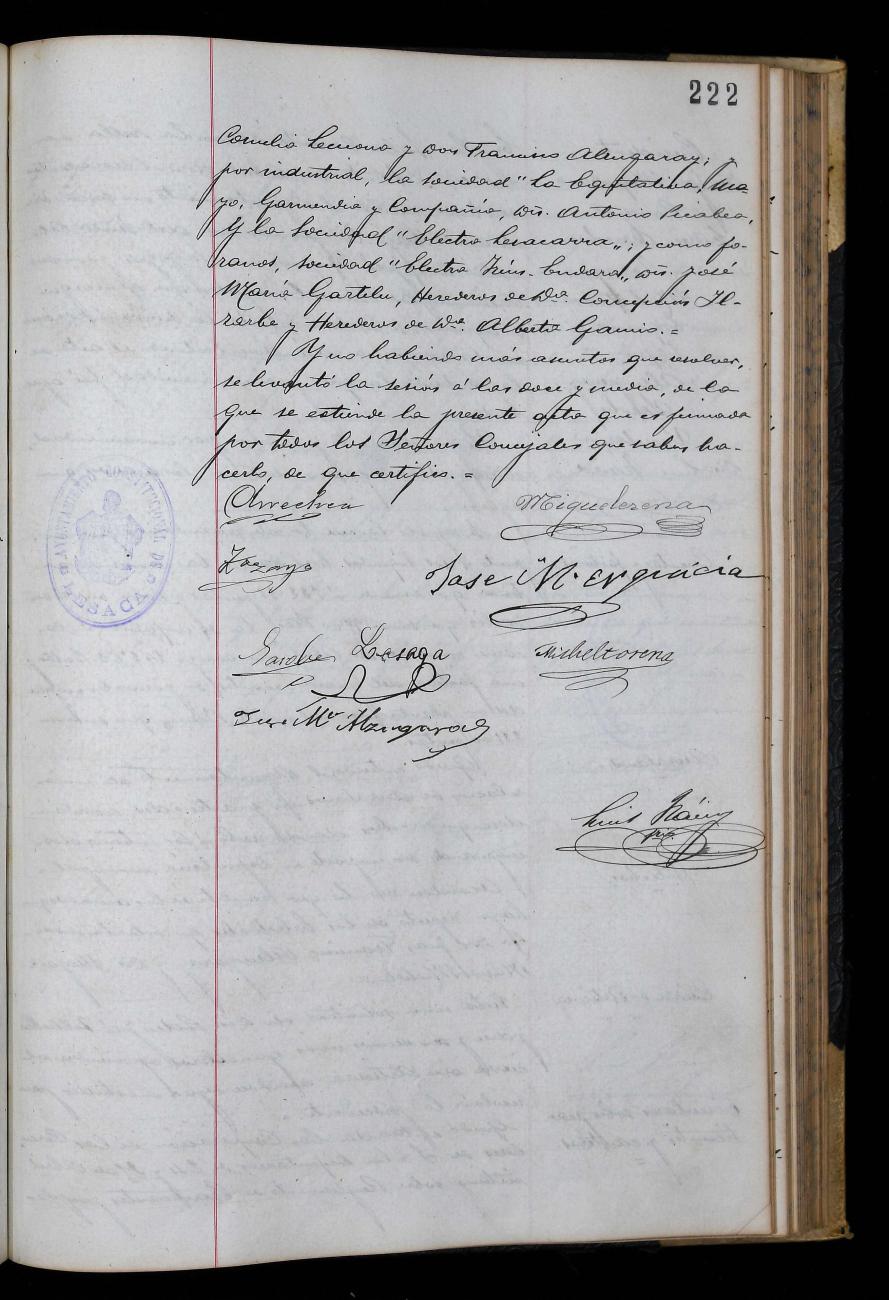 222
Cornelio Lecuona y Don Francisco Alzugaray; y
por industrial, la sociedad "La Equitativa", Ma-
yo, Garmendia y Compañía, Dn. Antonio Picabea,
Y la Sociedad "Electra Lesacarra"; y como fo-
ranos, sociedad "Electra Irún-Endara", Dn. José
María Gartelu, Herederos de Dª. Concepción Il-
rarbe y Herederos de Dª. Alberta Gamio.=
Y no habiendo más asuntos que resolver,
se levantó la sesión á las doce y media, de la
que se estiende la presente acta que es firmada
por todos los Señores Concejales que saben ha-
cerlo, de que certifico.=
Arrechea
Migueltorena
AYUNTAMIENTO CONSTITUCIONAL DE
LESACA
Jose M. Erquicia
Lesaga
Micheltorena
Jose Mª Alzugaray
Luis